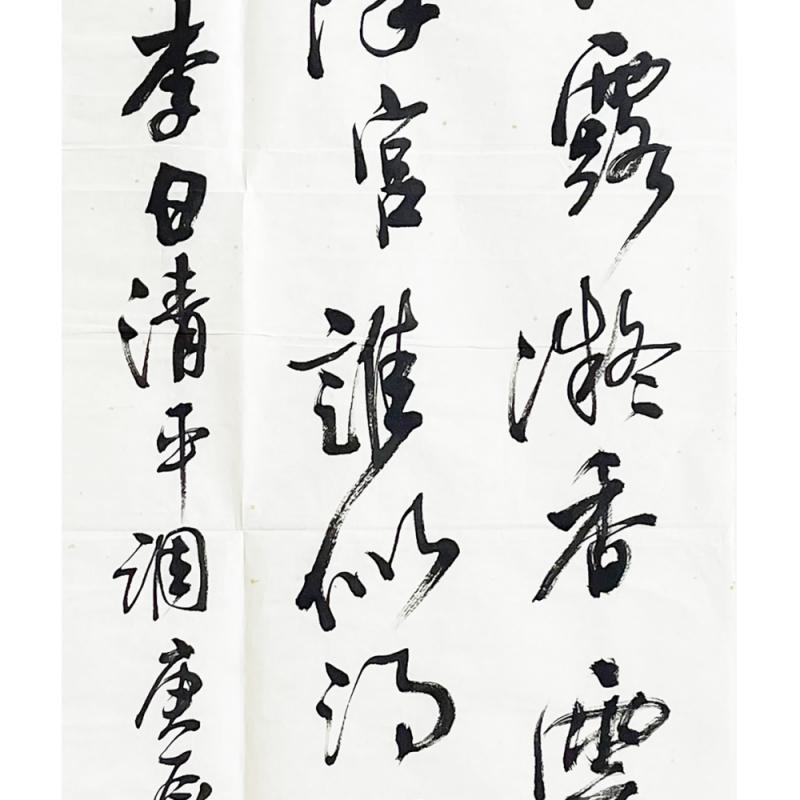 露凝香雲
漢宮誰似得
李白清平調庚